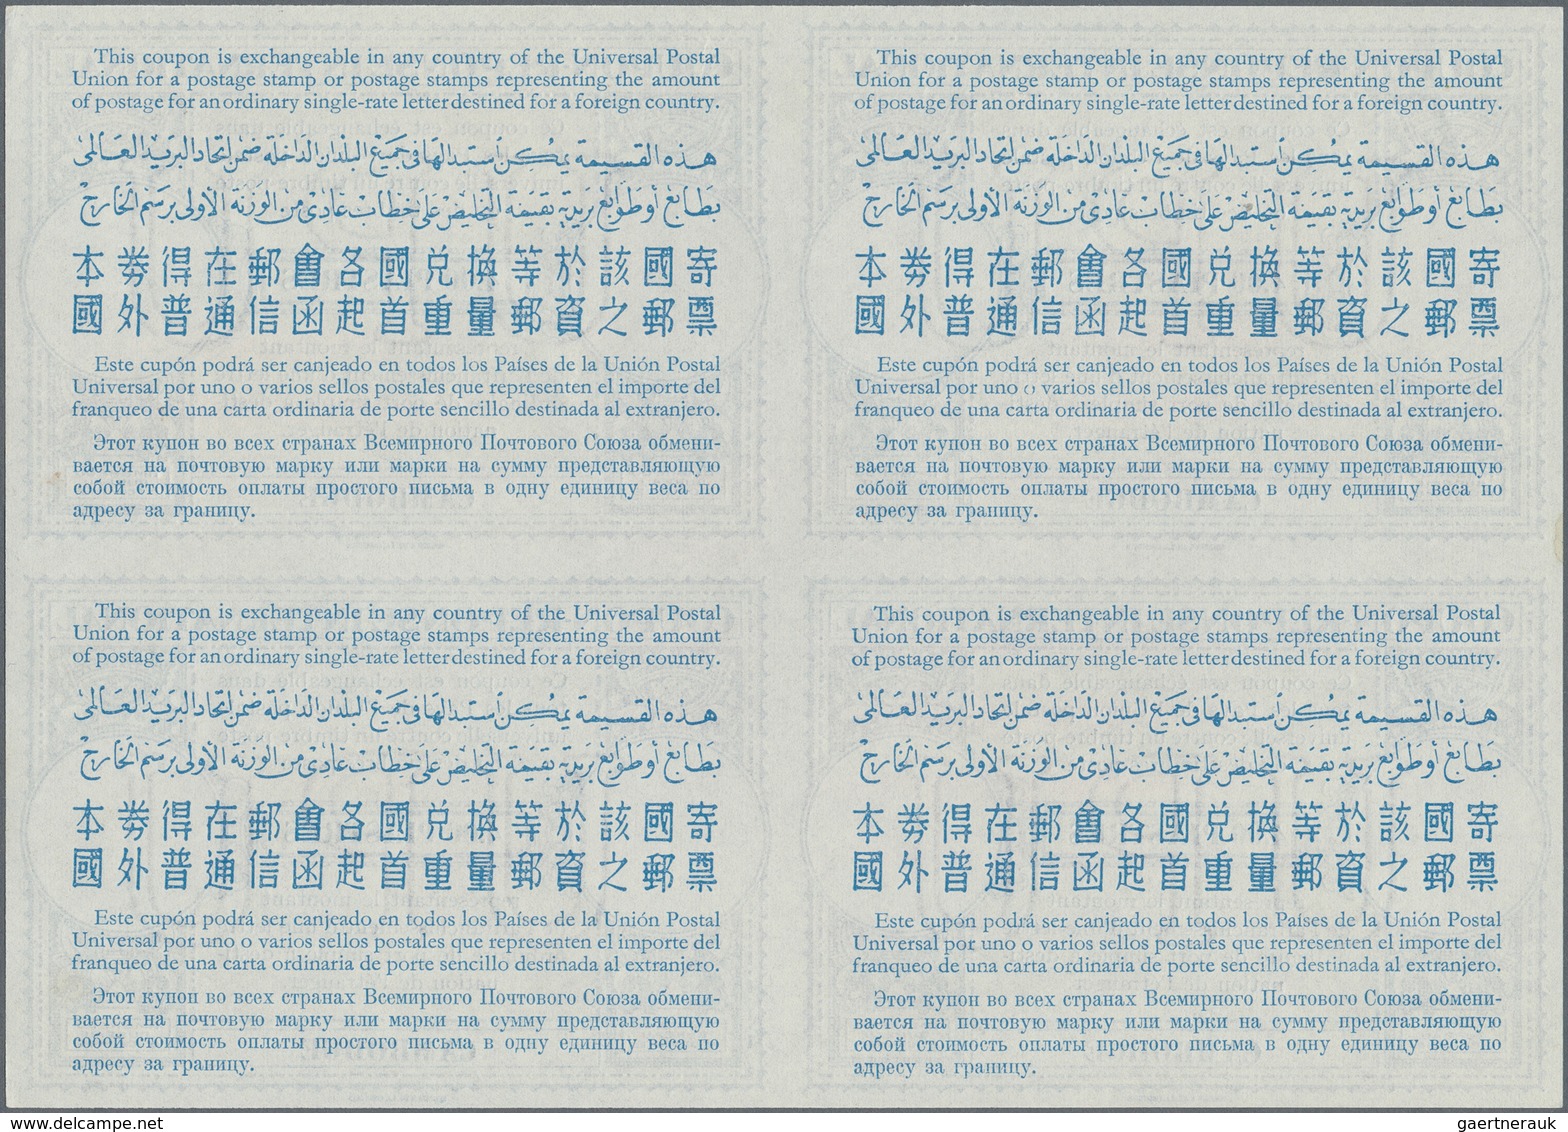 This coupon is exchangeable in any country of the Universal Postal
Union for a postage stamp or postage stamps representing the amount
of postage for an ordinary single-rate letter destined for a foreign country.
هذه القسيمة يمكن استبدالها في جميع البلدان الداخلة ضمن اتحاد البريد العالمى
بطابع أو طوابع بريدية بقيمة التخليص على خطاب عادى من الوزنة الأولى برسم الخارج
本券得在郵會各國兌換等於該國寄
國外普通信函起首重量郵資之郵票
Este cupón podrá ser canjeado en todos los Países de la Unión Postal
Universal por uno o varios sellos postales que representen el importe del
franqueo de una carta ordinaria de porte sencillo destinada al extranjero.
Этот купон во всех странах Всемирного Почтового Союза обмени-
вается на почтовую марку или марки на сумму представляющую
собой стоимость оплаты простого письма в одну единицу веса по
адресу за границу.
This coupon is exchangeable in any country of the Universal Postal
Union for a postage stamp or postage stamps representing the amount
of postage for an ordinary single-rate letter destined for a foreign country.
هذه القسيمة يمكن استبدالها في جميع البلدان الداخلة ضمن اتحاد البريد العالمى
بطابع أو طوابع بريدية بقيمة التخليص على خطاب عادى من الوزنة الأولى برسم الخارج
本券得在郵會各國兌換等於該國寄
國外普通信函起首重量郵資之郵票
Este cupón podrá ser canjeado en todos los Países de la Unión Postal
Universal por uno o varios sellos postales que representen el importe del
franqueo de una carta ordinaria de porte sencillo destinada al extranjero.
Этот купон во всех странах Всемирного Почтового Союза обмени-
вается на почтовую марку или марки на сумму представляющую
собой стоимость оплаты простого письма в одну единицу веса по
адресу за границу.
This coupon is exchangeable in any country of the Universal Postal
Union for a postage stamp or postage stamps representing the amount
of postage for an ordinary single-rate letter destined for a foreign country.
هذه القسيمة يمكن استبدالها في جميع البلدان الداخلة ضمن اتحاد البريد العالمى
بطابع أو طوابع بريدية بقيمة التخليص على خطاب عادى من الوزنة الأولى برسم الخارج
本券得在郵會各國兌換等於該國寄
國外普通信函起首重量郵資之郵票
Este cupón podrá ser canjeado en todos los Países de la Unión Postal
Universal por uno o varios sellos postales que representen el importe del
franqueo de una carta ordinaria de porte sencillo destinada al extranjero.
Этот купон во всех странах Всемирного Почтового Союза обмени-
вается на почтовую марку или марки на сумму представляющую
собой стоимость оплаты простого письма в одну единицу веса по
адресу за границу.
This coupon is exchangeable in any country of the Universal Postal
Union for a postage stamp or postage stamps representing the amount
of postage for an ordinary single-rate letter destined for a foreign country.
هذه القسيمة يمكن استبدالها في جميع البلدان الداخلة ضمن اتحاد البريد العالمى
بطابع أو طوابع بريدية بقيمة التخليص على خطاب عادى من الوزنة الأولى برسم الخارج
本券得在郵會各國兌換等於該國寄
國外普通信函起首重量郵資之郵票
Este cupón podrá ser canjeado en todos los Países de la Unión Postal
Universal por uno o varios sellos postales que representen el importe del
franqueo de una carta ordinaria de porte sencillo destinada al extranjero.
Этот купон во всех странах Всемирного Почтового Союза обмени-
вается на почтовую марку или марки на сумму представляющую
собой стоимость оплаты простого письма в одну единицу веса по
адресу за границу.
www.delcampe.net
gaertnerauk